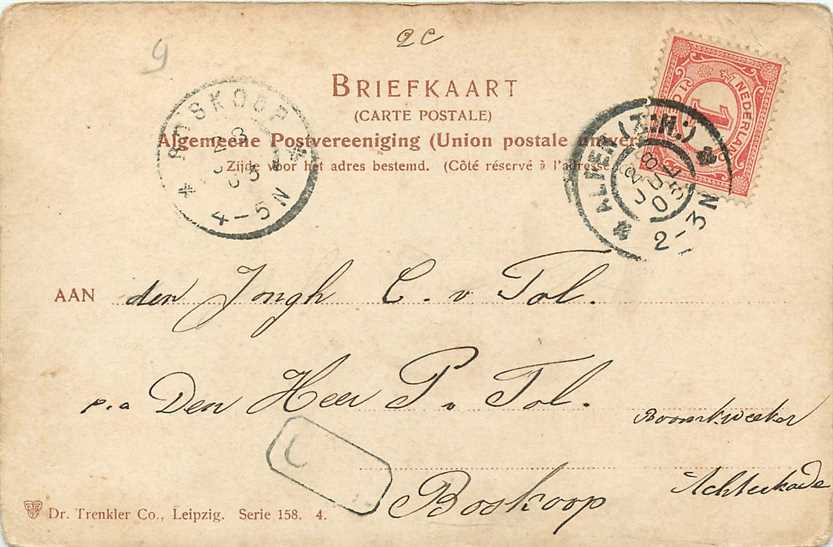 9
2c
BRIEFKAART
(CARTE POSTALE)
Algemeene Postvereeniging (Union postale univer
Zijde voor het adres bestemd. (Côté réservé à l'adresse
BOSKOOP
4-5N
ALFEN (Z:H:)
2-3N
NEDERLAND
1
AAN den Jongh C. v Tol.
p.a Den Heer P. v Tol.
Boomkweeker
Achterkade
Boskoop
C
Dr. Trenkler Co., Leipzig. Serie 158. 4.